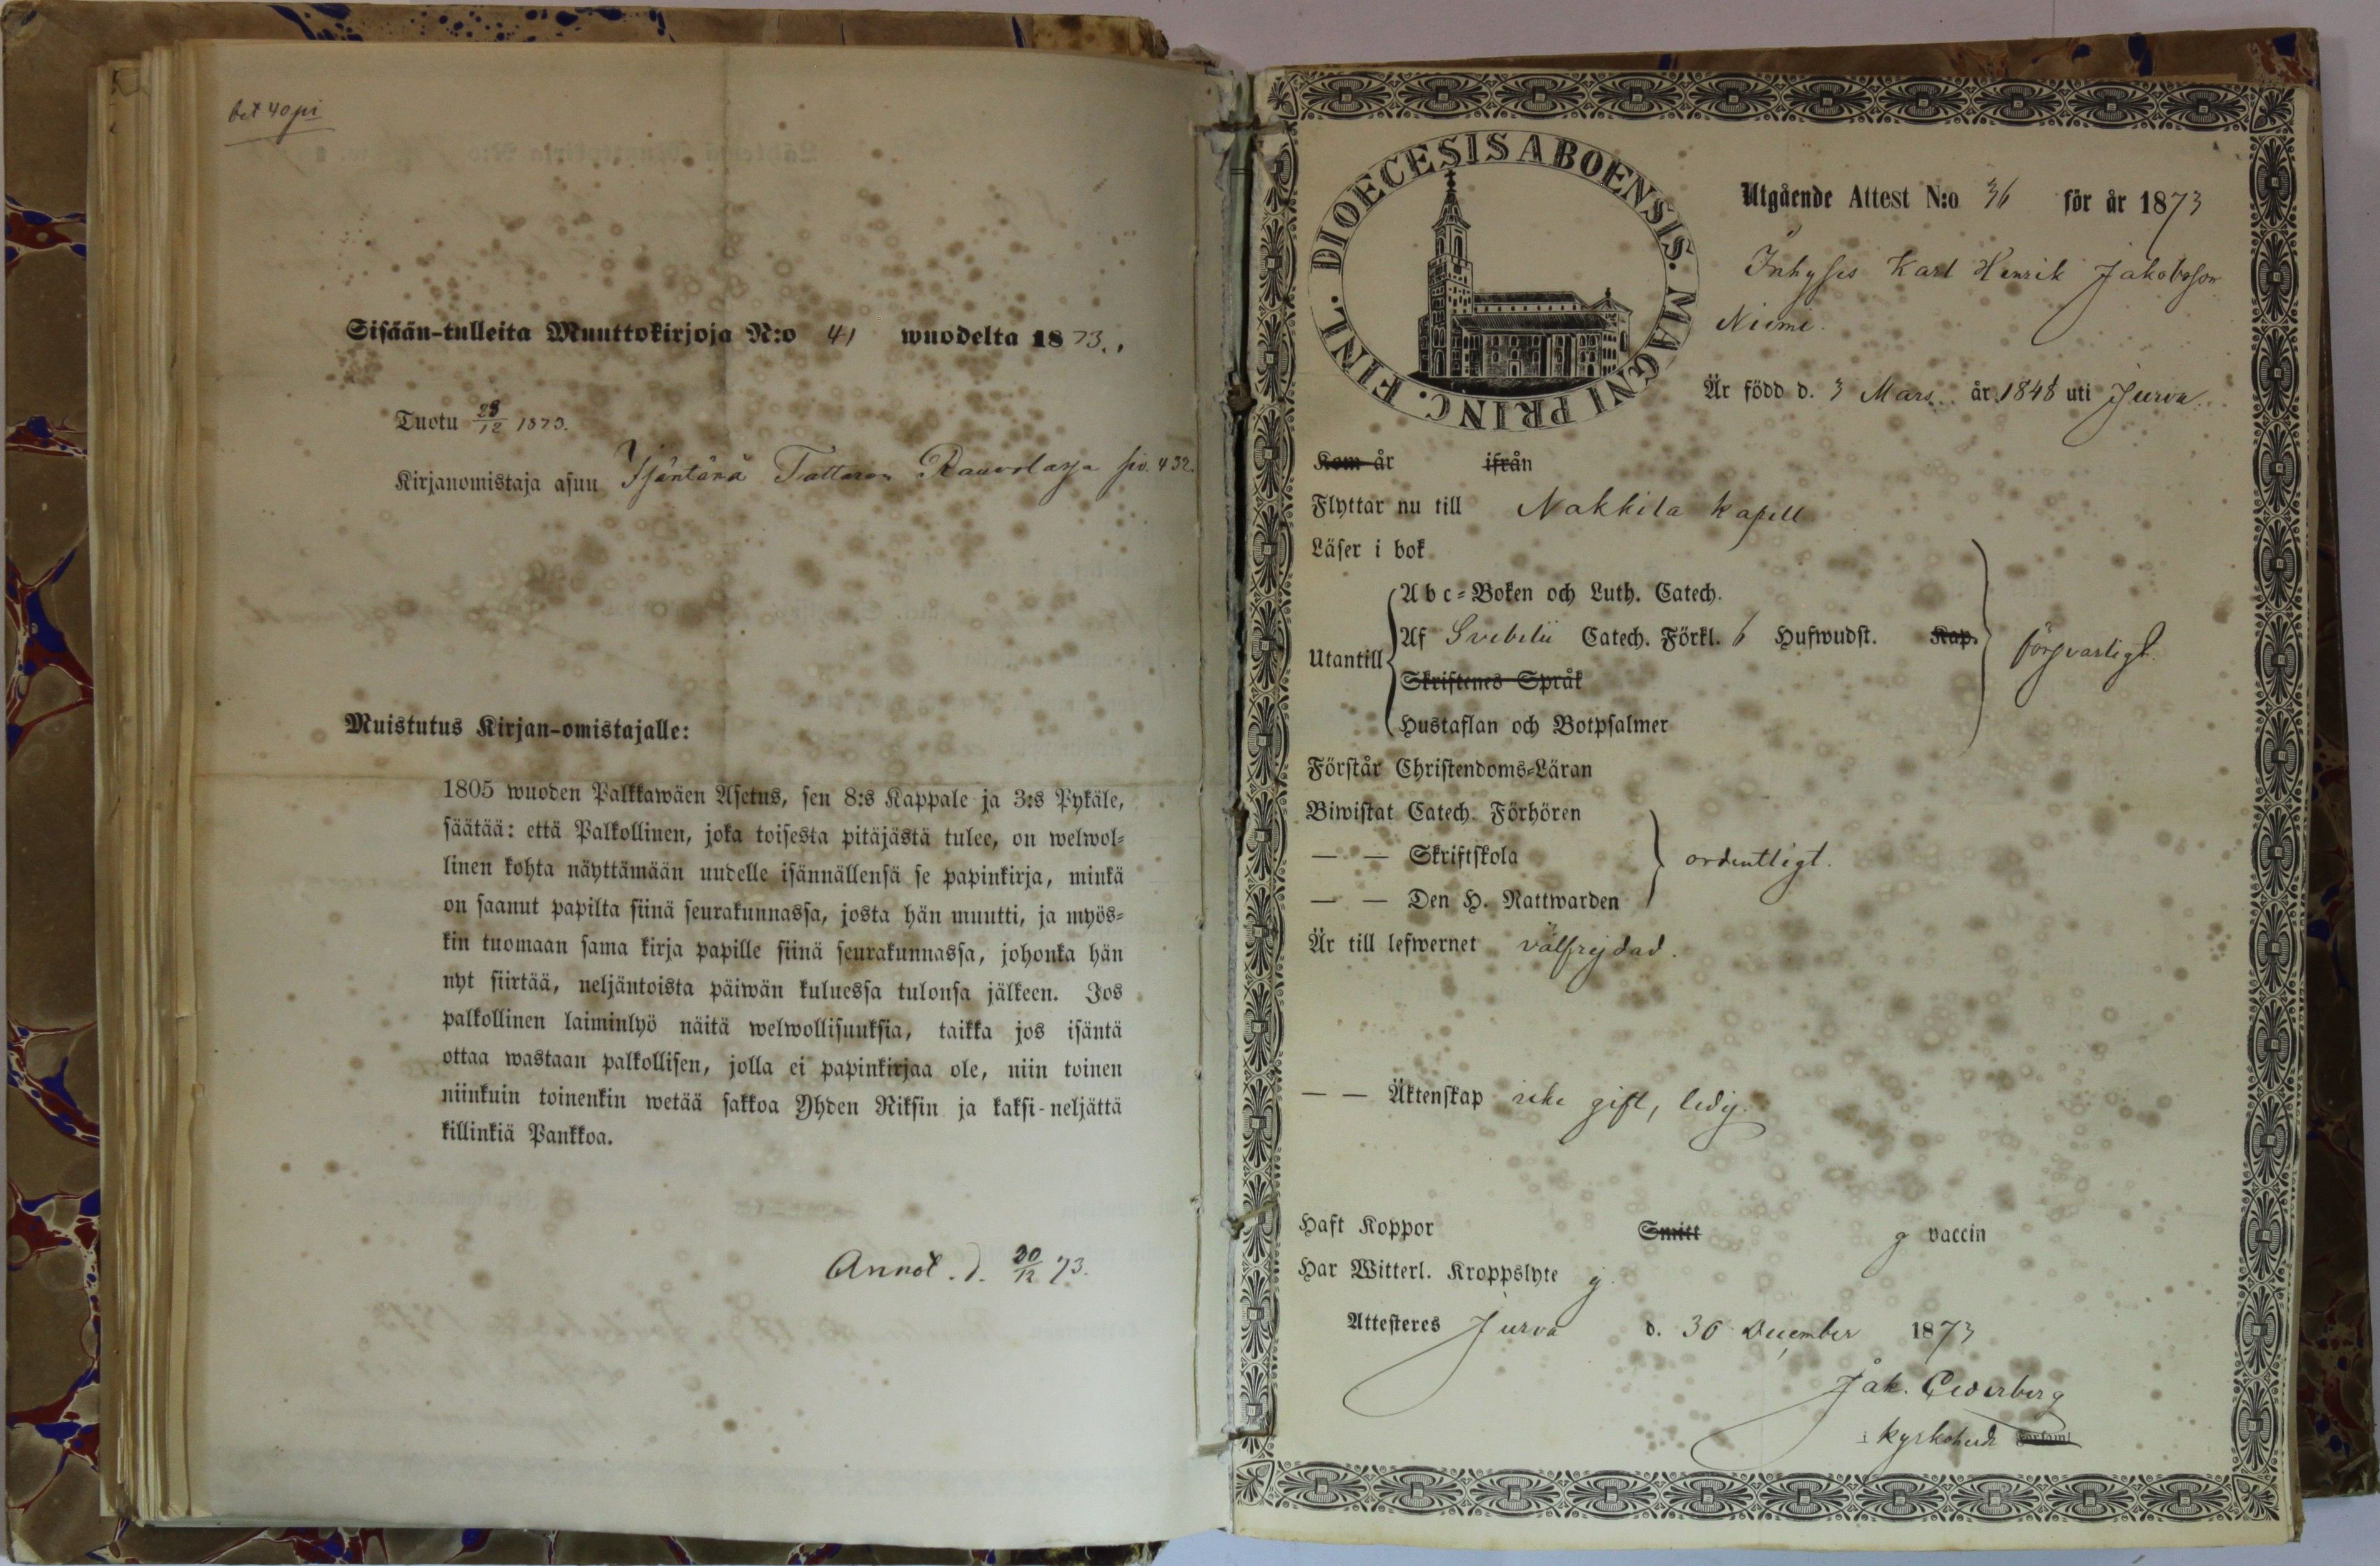 bet 40 pi
Sisään-tulleita Muuttokirjoja N:o 41 wuodelta 1873.
Tuotu 28/12 1873.
Kirjanomistaja asuu Isäntänä Tattaran Rauvolassa siv. 432.
Muistutus Kirjan-omistajalle:
1805 wuoden Palkkawäen Asetus, sen 8:s Kappale ja 3:s Pykäle,
säätää: että Palkollinen, joka toisesta pitäjästä tulee, on welwol-
linen kohta näyttämään uudelle isännällensä se papinkirja, minkä
on saanut papilta siinä seurakunnassa, josta hän muutti, ja myös-
kin tuomaan sama kirja papille siinä seurakunnassa, johonka hän
nyt siirtää, neljäntoista päiwän kuluessa tulonsa jälkeen. Jos
palkollinen laiminlyö näitä welwollisuuksia, taikka jos isäntä
ottaa wastaan palkollisen, jolla ei papinkirjaa ole, niin toinen
niinkuin toinenkin wetää sakkoa Yhden Riksin ja kaksi-neljättä
killinkiä Pankkoa.
Annot. d. 20/12 73.
DIOECESIS ABOENSIS. MAGNI PRINC. FINL.
Utgående Attest N:o 36 för år 1873
Inhyses Karl Henrik Jakobsson
Niemi.
Är född d. 3 Mars. år 1848 uti Jurva.
Kom år ifrån
Flyttar nu till Nakkila kapell
Läser i bok
Abc-Boken och Luth. Catech.
Utantill Af Svebelii Catech. Förkl. 6 Hufwudst. Kap. försvarligt.
Skriftenes Språk
Hustaflan och Botpsalmer
Förstår Christendoms-Läran
Biwistat Catech. Förhören
— — Skriftskola ordentligt.
— — Den H. Nattwarden
Är till lefwernet välfrejdad.
— — Äktenskap icke gift, ledig.
Haft Koppor Smitt g vaccin
Har Witterl. Kroppslyte ej
Attesteres Jurva d. 30 December 1873
Jak. Cederberg
kyrkoherde Församl